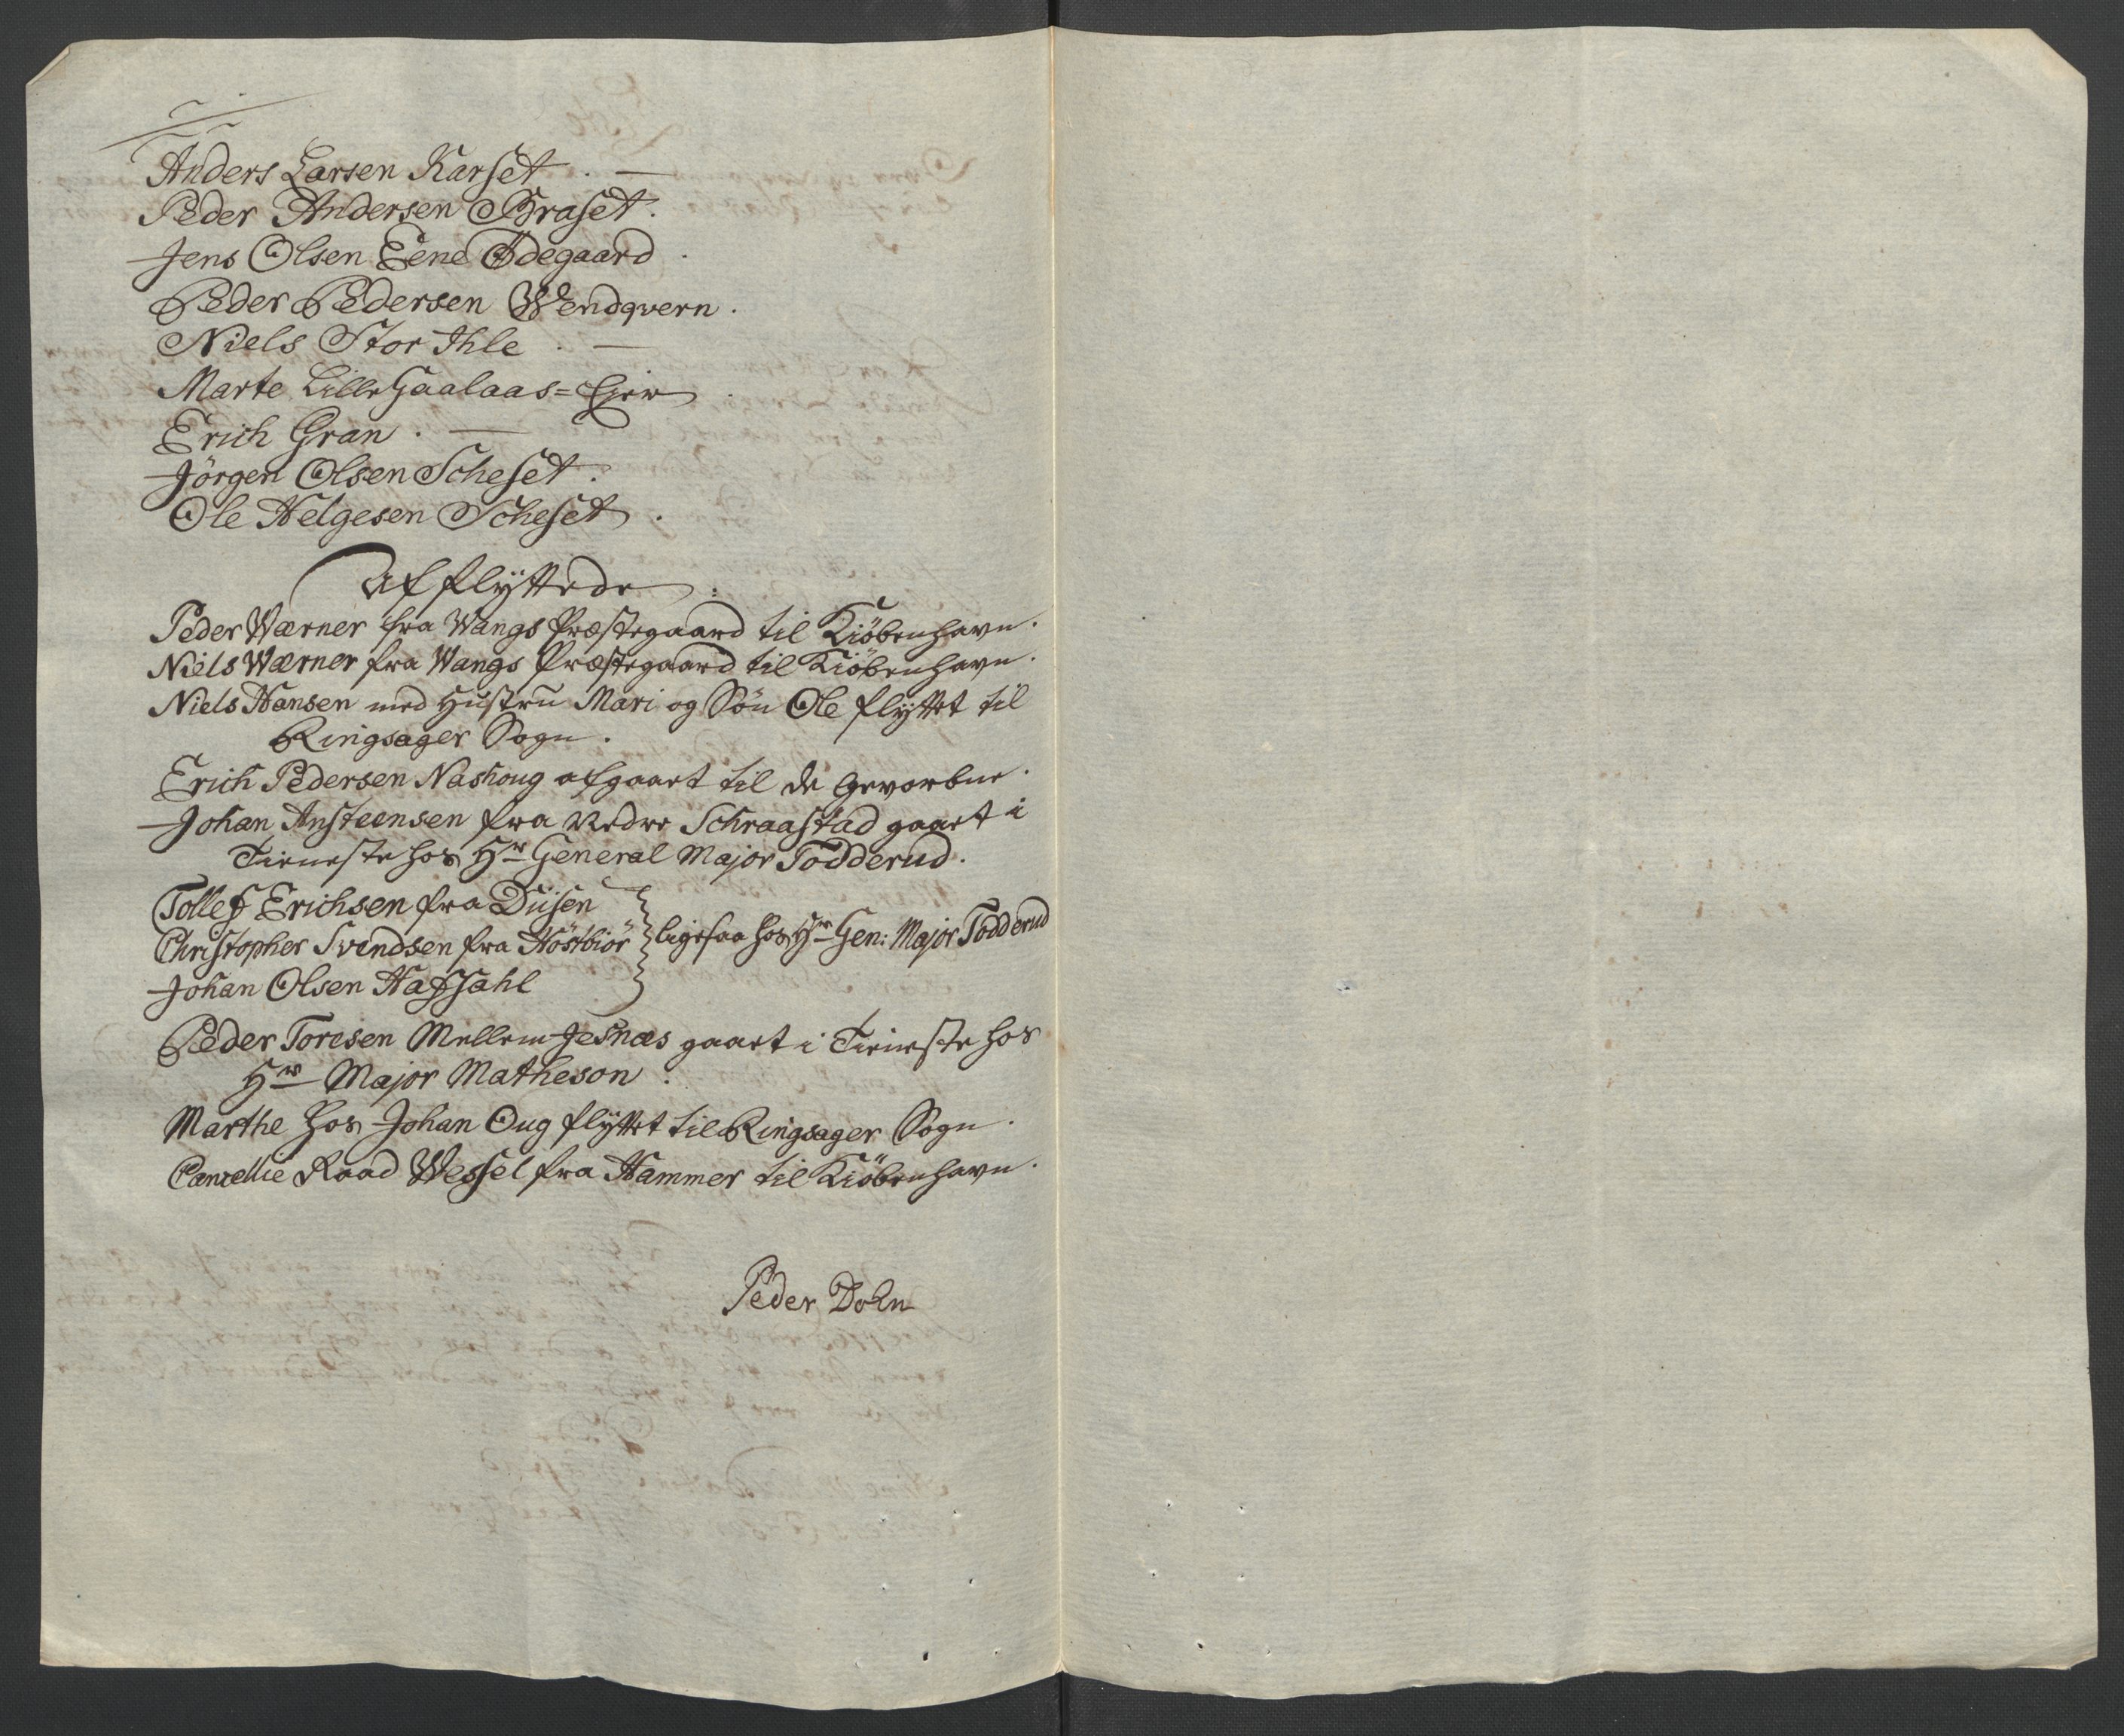 Anders Larsen Karset . —
Peder Andersen Braset .
Jens Olsen Eene Ödegaard .
Peder Pedersen Wendqvern .
Niels Stor Ihle . —
Marte Lille Gaalaas = Ejer .
Erich Gran . —
Jörgen Olsen Scheset .
Ole Helgesen Scheset .
Afflÿttede :
Peder Wærner fra Wangs Præstegaard til Kiöbenhavn .
Niels Wærner fra Wangs Præstegaard til Kiöbenhavn .
Niels Hansen med Hustru Mari og Sön Ole flÿttet til
Ringsager Sogn .
Erich Pedersen Nashoug afgaaet til de Gevorbne .
Johan Ansteensen fra Nedre Schraastad gaaet i
Tieneste hos Hr General Major Todderud .
Tollef Erichsen fra Diisen
Christopher Svendsen fra Höstbiör } ligesaa hos Hr Gen: Major Todderud
Johan Olsen Hafsahl
Peder Toresen Mellem Jesnæs gaaet i Tieneste hos
Hr Major Matheson .
Marthe hos Johan Oug flÿttet til Ringsager Sogn .
Cancellie Raad Wessel fra Hammer til Kiöbenhavn .
Peder Dohn